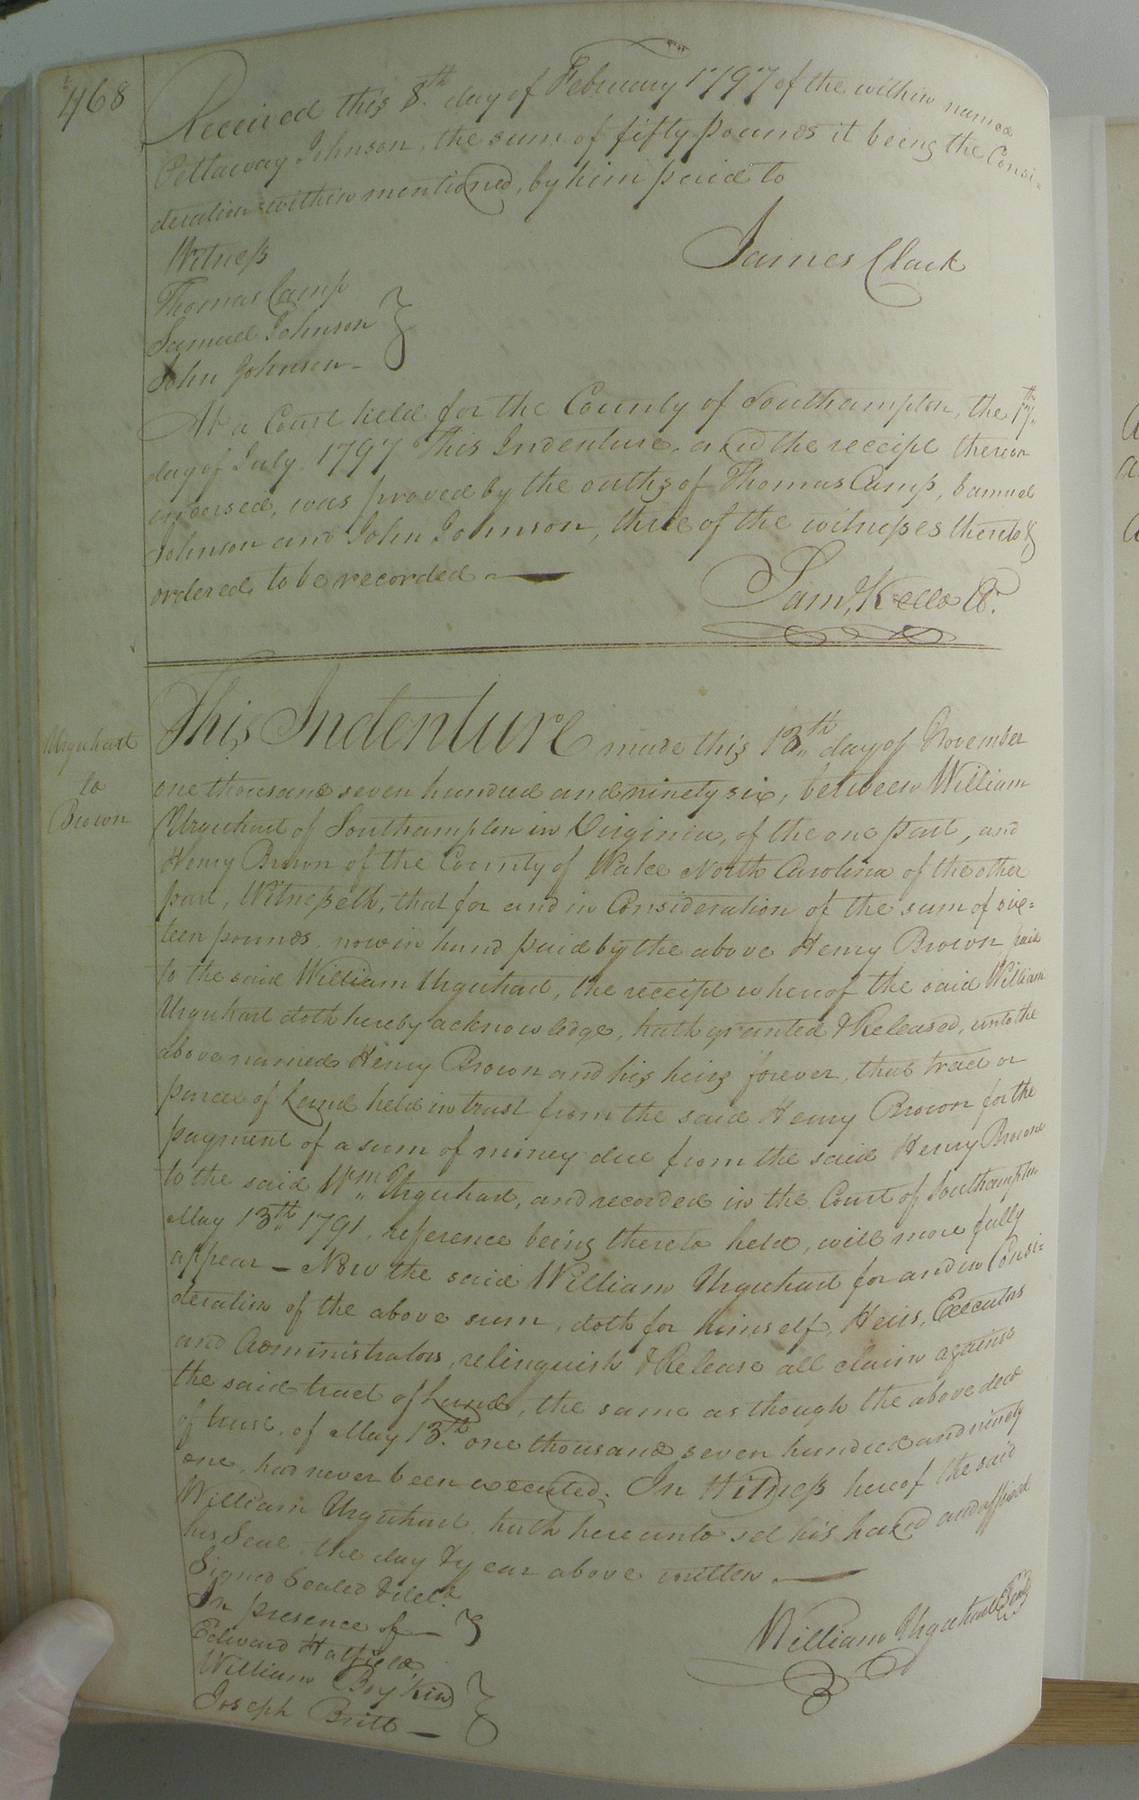 468
Received this 8.th day of February 1797 of the within named
Pettaway Johnson, the sum of fifty pounds it being the Consi-
deration within mentioned, by him paid to
James Clark
Witness
Thomas Camp
Samuel Johnson
John Johnson
At a Court held for the County of Southampton, the 17.th
day of July 1797 This Indenture, and the receipt thereon
indorsed, was proved by the oaths of Thomas Camp, Samuel
Johnson and John Johnson, three of the witnesses thereto &
ordered to be recorded
Saml. Kello
Urquhart
to
Brown
This Indenture made this 13th day of November
one thousand seven hundred and ninety six, between William
Urquhart of Southampton in Virginia, of the one part, and
Henry Brown of the County of Wake North Carolina of the other
part, Witnesseth, that for and in Consideration of the sum of six=
teen pounds now in hand paid by the above Henry Brown paid
to the said William Urquhart, the receipt whereof the said William
Urquhart doth hereby acknowledge, hath granted & Released, unto the
above named Henry Brown and his heirs forever, that tract or
parcel of Land held in trust from the said Henry Brown for the
payment of a sum of money due from the said Henry Brown
to the said Wm. Urquhart, and recorded in the Court of Southampton
May 13th 1791, reference being thereto held, will more fully
appear - Now the said William Urquhart for and in Consi=
deration of the above sum, doth for himself, Heirs, Executors
and Administrators, relinquish & Release all claim against
the said tract of Land, the same as though the above deed
of trust, of May 13.th one thousand seven hundred and ninety
one, had never been executed. In Witness hereof the said
William Urquhart hath hereunto set his hand and affixed
his Seal the day & year above written.
Signed Sealed & del.d
In presence of
William Urquhart Seal
Edward Hatfield
William
Joseph Britt